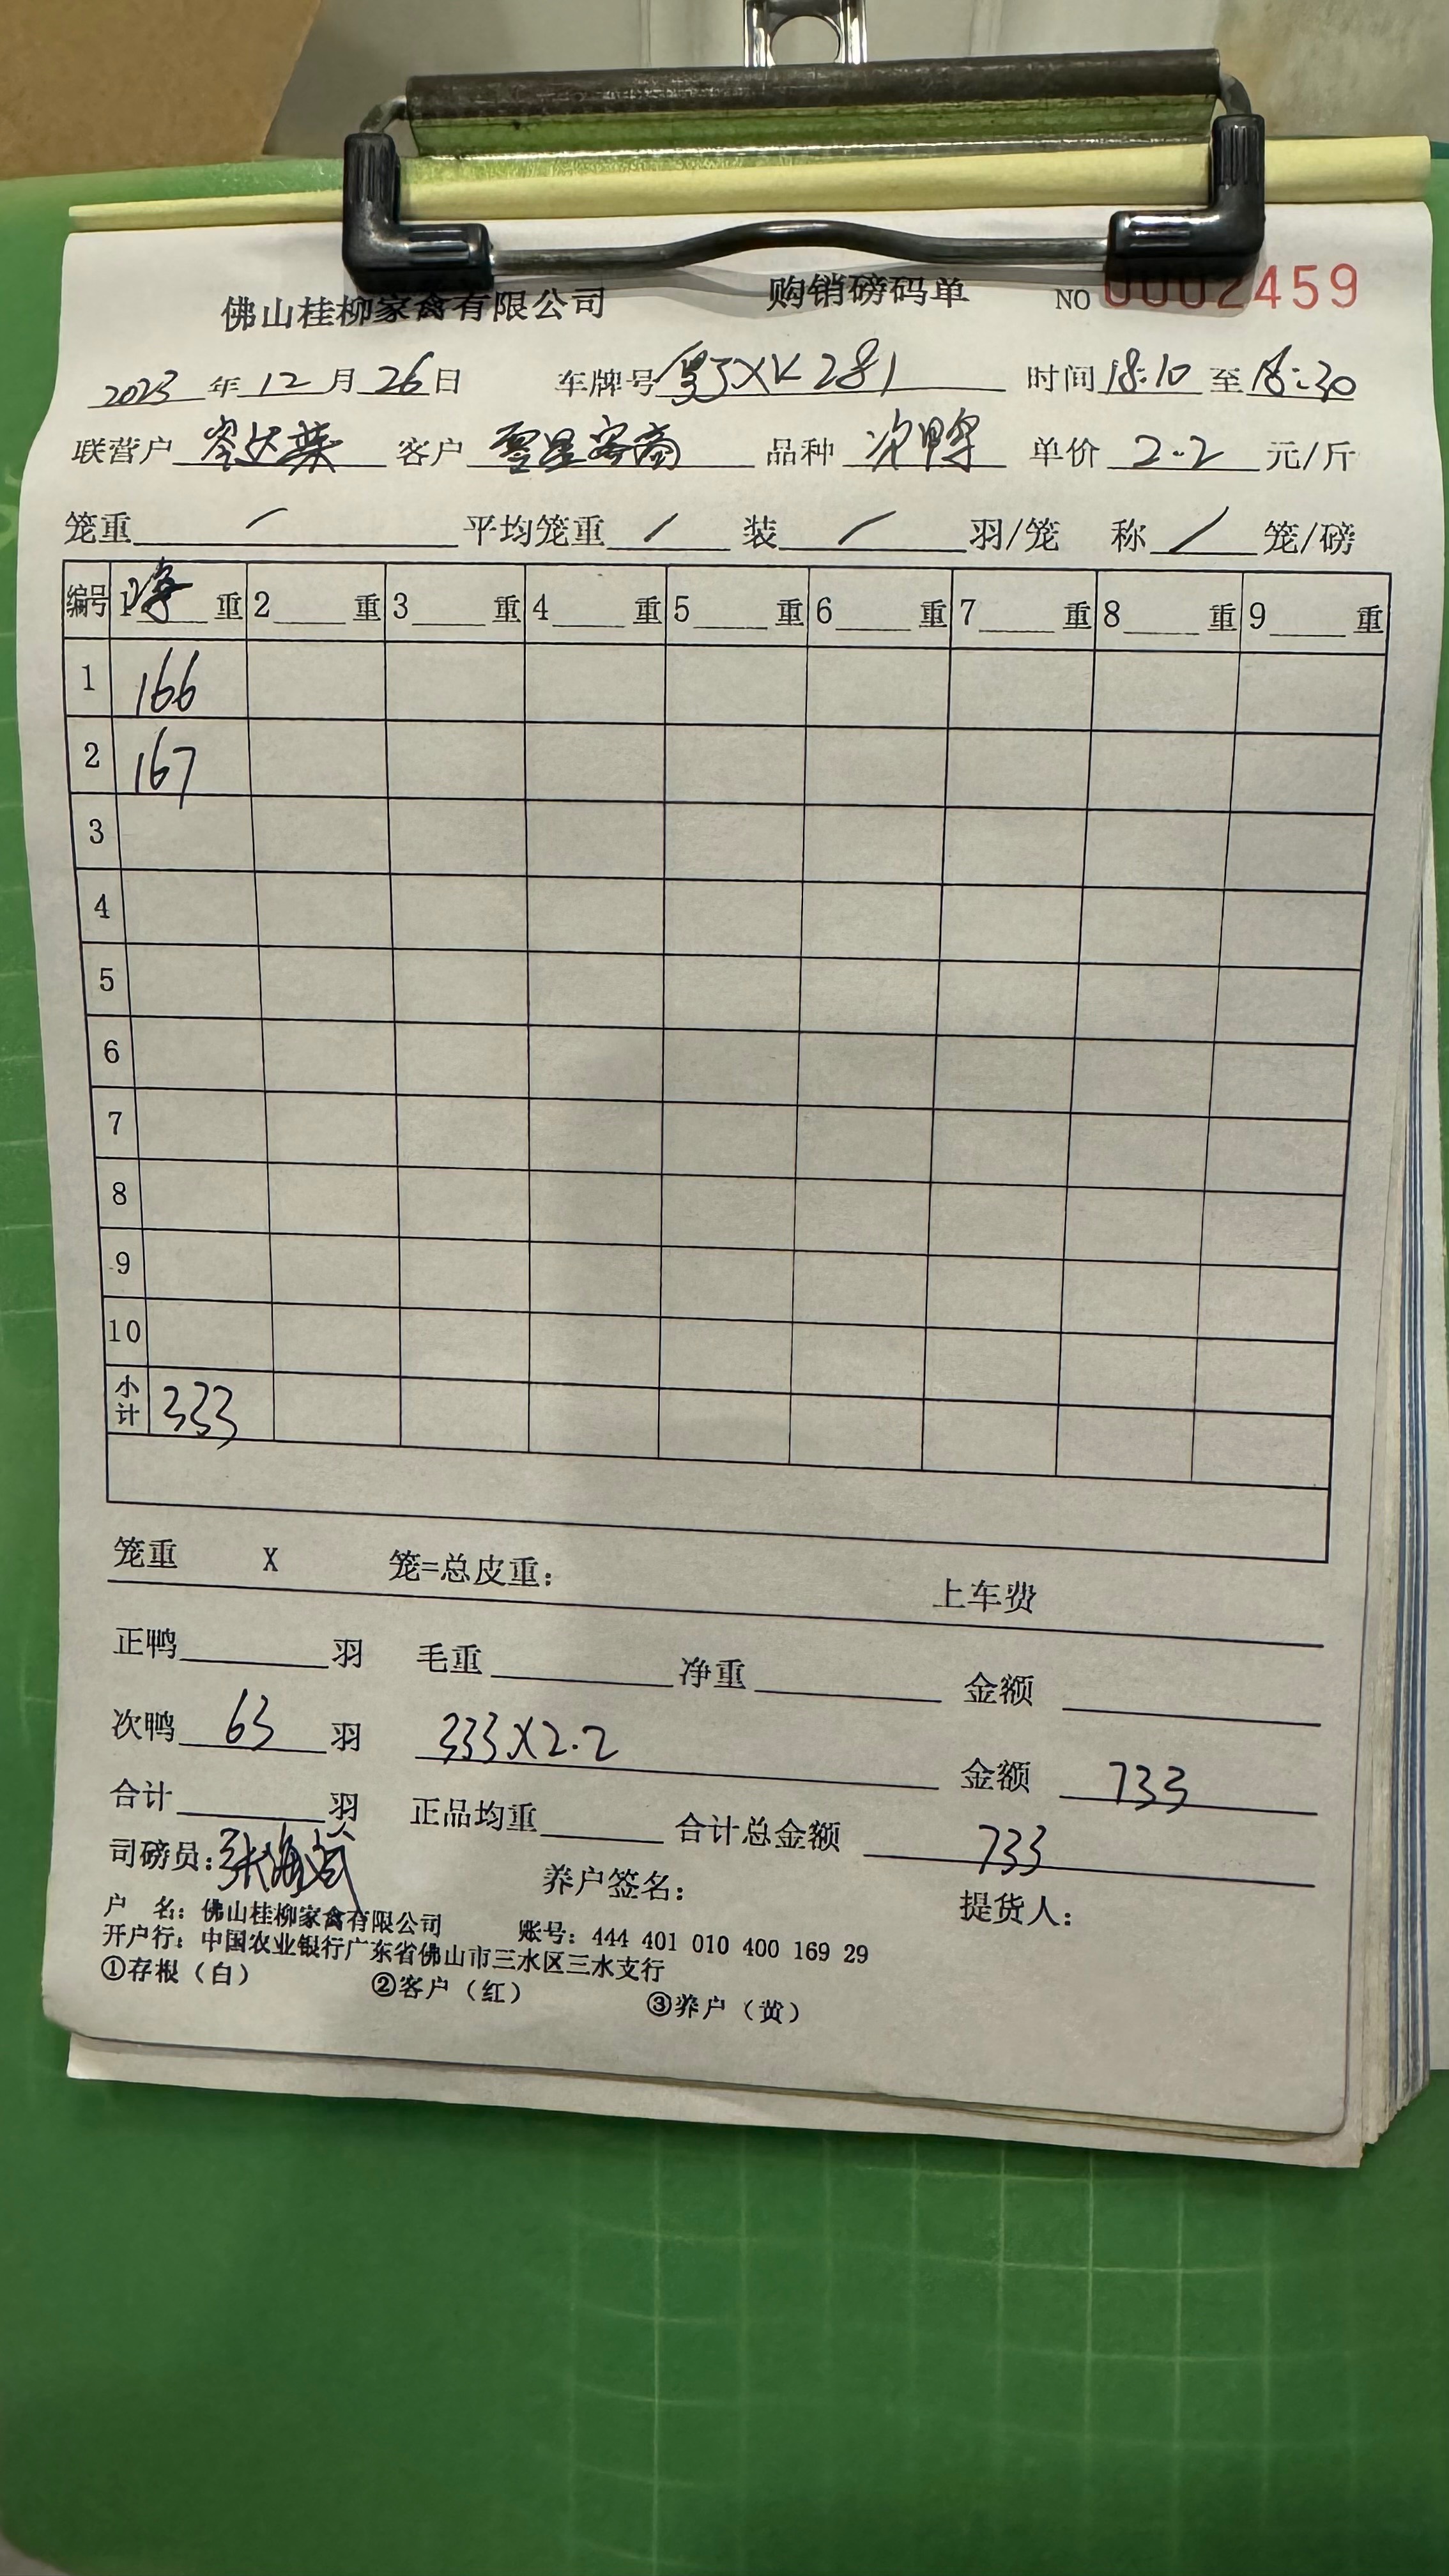 佛山桂柳家禽有限公司 购销磅码单 NO 0002459
2023年12月26日 车牌号粤JXK281 时间18:10至18:30
联营户岑达燊 客户零星客商 品种次鸭 单价2.2元/斤
笼重/ 平均笼重/ 装/羽/笼 称/笼/磅
编号 1净重 2重 3重 4重 5重 6重 7重 8重 9重
1 166
2 167
3
4
5
6
7
8
9
10
小计 333
笼重 X 笼=总皮重: 上车费
正鸭 羽 毛重 净重 金额
次鸭 63 羽 333X2.2 金额 733
合计 羽 正品均重 合计总金额 733
司磅员:张海斌 养户签名: 提货人:
户 名: 佛山桂柳家禽有限公司 账号: 444 401 010 400 169 29
开户行: 中国农业银行广东省佛山市三水区三水支行
①存根(白) ②客户(红) ③养户(黄)